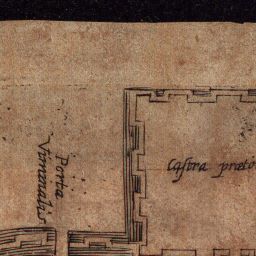 Porta
Viminalis
Castra præto